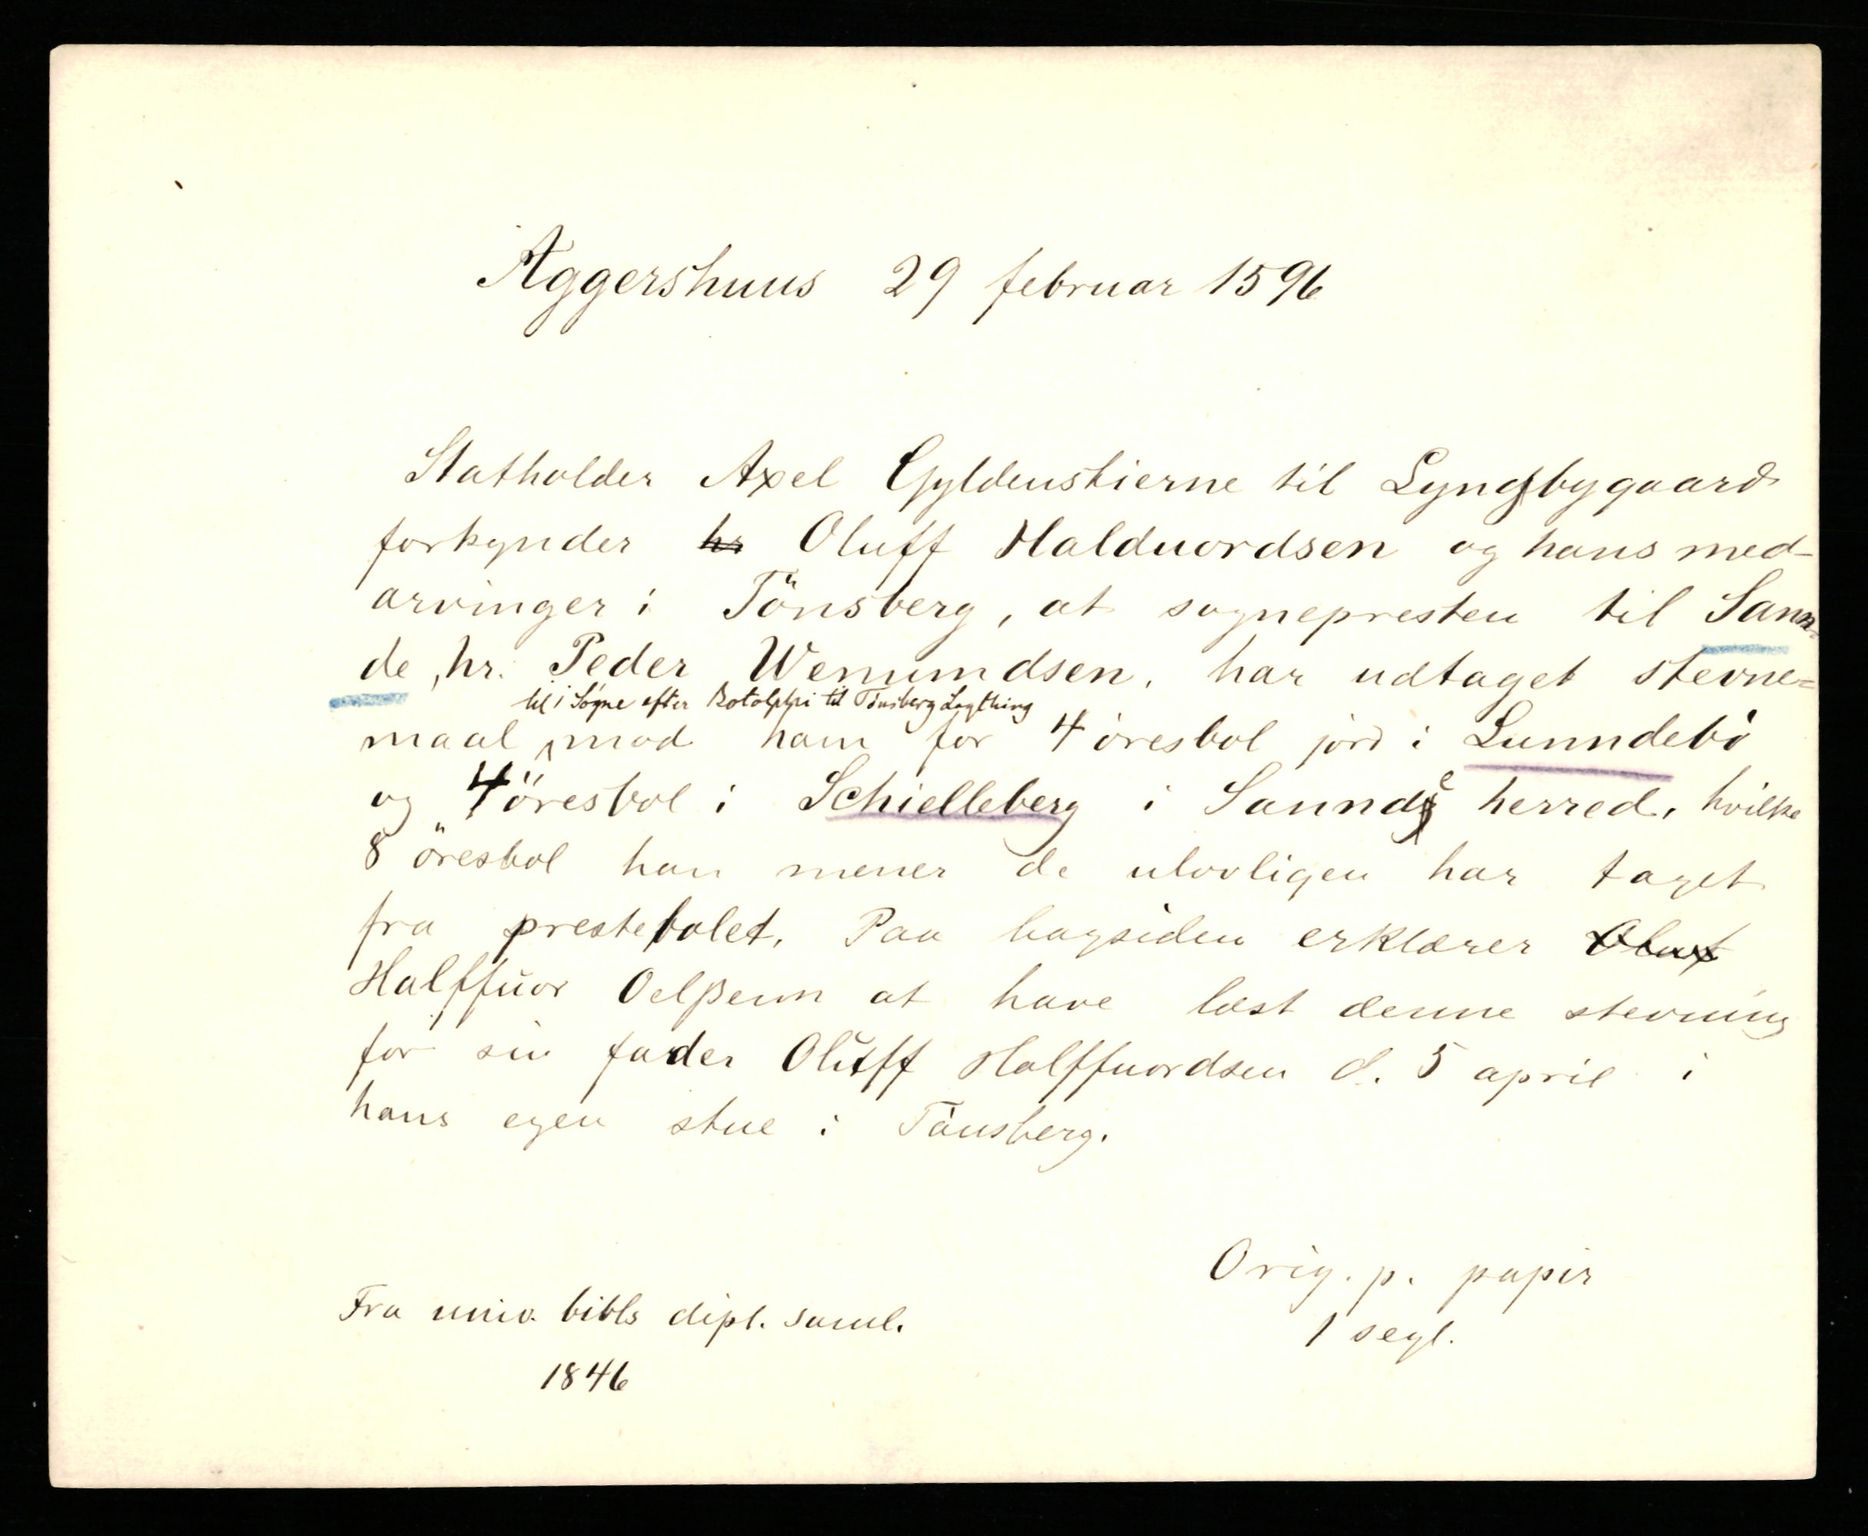 Aggershuus 29 februar 1596
Statholder Axel Gyldenstierne til Lyngbygaard
forkynder hr Oluff Halduordsen og hans med-
arvinger i Tönsberg, at sognepresten til Sann-
de, hr. Peder Wenumdsen, har udtaget stevne=
til i Søgne efter Botolphi til Tønsberg Lagthing
maal mod ham for 4 öresbol jord i Lunndebö
og 4 öresbol i Schielleberg i Sannde herred, hvilke
8 öresbol han mener de ulovligen har taget
fra prestebolet. Paa bagsiden erklærer Oluf
Halffuor Oelßenn at have læst denne stevning
for sin fader Oluff Halffuordsen d. 5 april i
hans egen stue i Tönsberg.
Orig. p. papir
1 segl.
Fra univ. bibls dipl. saml.
1846